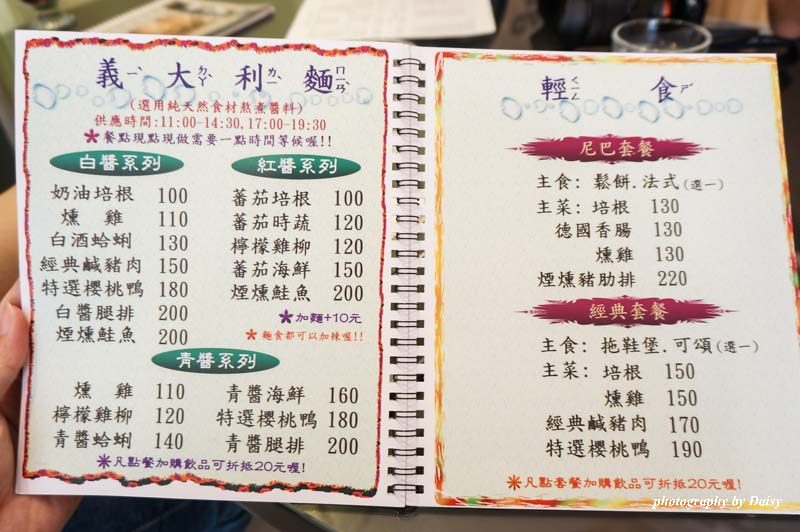 義ㄧˋ大ㄉㄚˋ利ㄌㄧˋ麵ㄇㄧㄢˋ
(選用純天然食材熬煮醬料)
供應時間:11:00-14:30,17:00-19:30
*餐點現點現做需要一點時間等候喔!!
白醬系列
奶油培根 100
燻雞 110
白酒蛤蜊 130
經典鹹豬肉 150
特選櫻桃鴨 180
白醬腿排 200
煙燻鮭魚 200
紅醬系列
蕃茄培根 100
蕃茄時蔬 120
檸檬雞柳 120
蕃茄海鮮 150
煙燻鮭魚 200
*加麵+10元
*麵食都可以加辣喔!!
青醬系列
燻雞 110
檸檬雞柳 120
青醬蛤蜊 140
青醬海鮮 160
特選櫻桃鴨 180
青醬腿排 200
*凡點餐加購飲品可折抵20元喔!
輕ㄑㄧㄥ食ㄕˊ
尼巴套餐
主食: 鬆餅.法式(選一)
主菜: 培根 130
德國香腸 130
燻雞 130
煙燻豬肋排 220
經典套餐
主食: 拖鞋堡.可頌(選一)
主菜: 培根 150
燻雞 150
經典鹹豬肉 170
特選櫻桃鴨 190
*凡點套餐加購飲品可折抵20元喔!
photography by Daisy